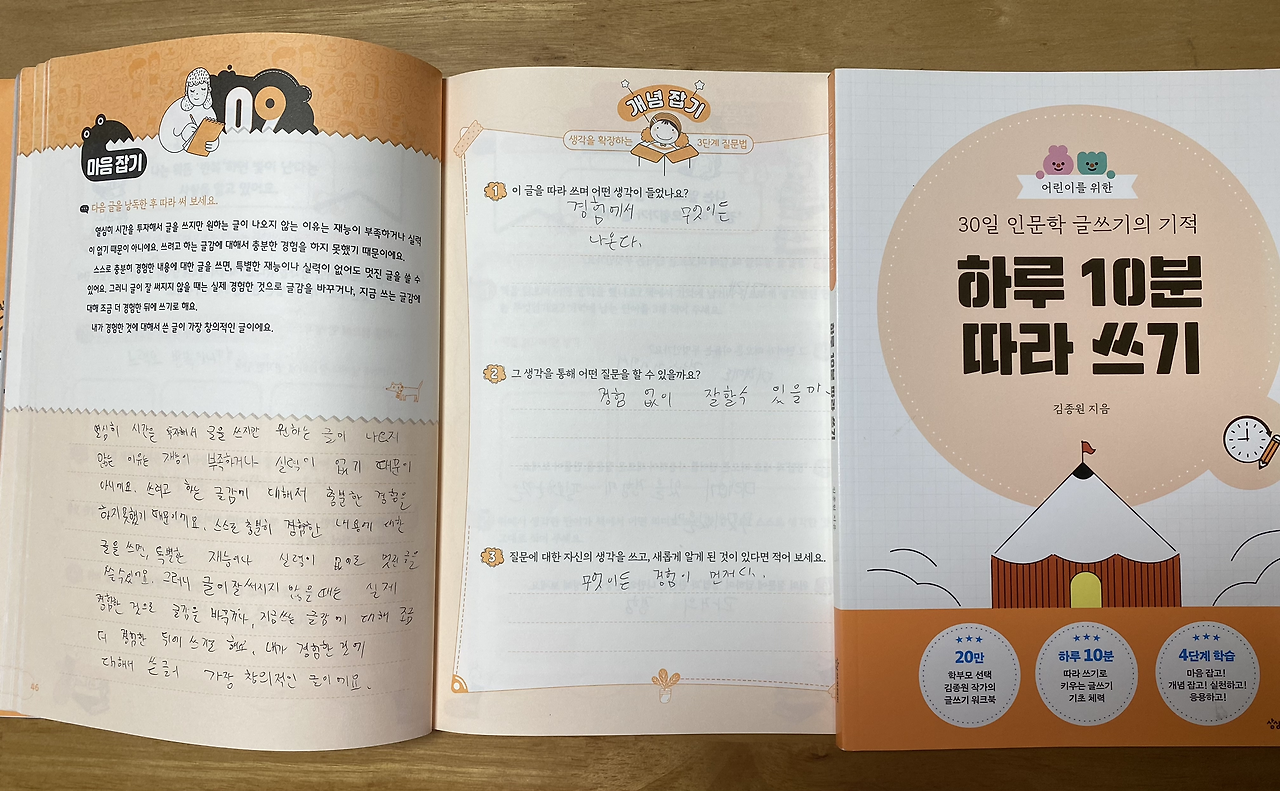 09
마음 잡기
다음 글을 낭독한 후 따라 써 보세요.
열심히 시간을 투자해서 글을 쓰지만 원하는 글이 나오지 않는 이유는 재능이 부족하거나 실력
이 없기 때문이 아니에요. 쓰려고 하는 글감에 대해서 충분한 경험을 하지 못했기 때문이에요.
스스로 충분히 경험한 내용에 대한 글을 쓰면, 특별한 재능이나 실력이 없어도 멋진 글을 쓸 수
있어요. 그러니 글이 잘 써지지 않을 때는 실제 경험한 것으로 글감을 바꾸거나, 지금 쓰는 글감에
대해 조금 더 경험한 뒤에 쓰기로 해요.
내가 경험한 것에 대해서 쓴 글이 가장 창의적인 글이에요.
열심히 시간을 투자해서 글을 쓰지만 원하는 글이 나오지
않는 이유는 재능이 부족하거나 실력이 없기 때문이
아니에요. 쓰려고 하는 글감에 대해서 충분한 경험을
하지못했기 때문이에요. 스스로 충분히 경험한 내용에 대한
글을 쓰면, 특별한 재능이나 실력이 없어도 멋진 글을
쓸수있어요. 그러니 글이 잘써지지 않을 때는 실제
경험한 것으로 글감을 바꾸거나, 지금쓰는 글감에 대해 조금
더 경험한 뒤에 쓰기로 해요. 내가 경험한 것에
대해서 쓴글이 가장 창의적인 글이에요.
46
개념 잡기
생각을 확장하는 3단계 질문법
1 이 글을 따라 쓰며 어떤 생각이 들었나요?
경험에서 무엇이든
나온다.
2 그 생각을 통해 어떤 질문을 할 수 있을까요?
경험 없이 잘할수 있을까
3 질문에 대한 자신의 생각을 쓰고, 새롭게 알게 된 것이 있다면 적어 보세요.
무엇이든 경험이 먼저다.
어린이를 위한
30일 인문학 글쓰기의 기적
하루 10분
따라 쓰기
김종원 지음
20만
학부모 선택
김종원 작가의
글쓰기 워크북
하루 10분
따라 쓰기로
키우는 글쓰기
기초 체력
4단계 학습
마음 잡고!
개념 잡고! 실천하고!
응용하고!